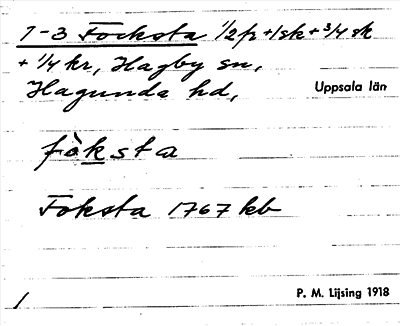 1-3 Focksta 1/2 fr + 1 sk + 3/4 sk
+ 1/4 kr, Hagby sn,
Hagunda hd, Uppsala län
fòksta
Foksta 1767 kb
P. M. Lijsing 1918
1